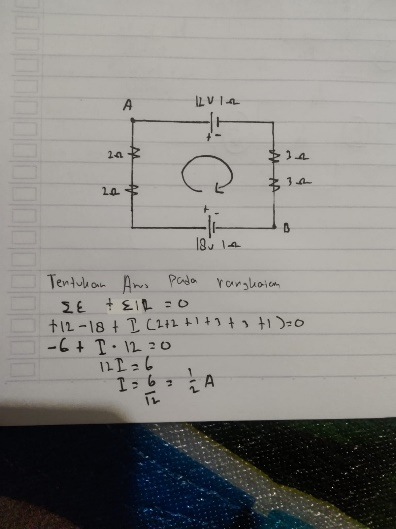 12V 1Ω
A
+ -
2Ω
3Ω
2Ω
3Ω
+ -
B
18V 1Ω
Tentukan Arus Pada rangkaian
ΣE + ΣIR = 0
+12 - 18 + I (2+2+1+3+3+1)=0
-6 + I · 12 = 0
12I = 6
I = 6/12 = 1/2 A